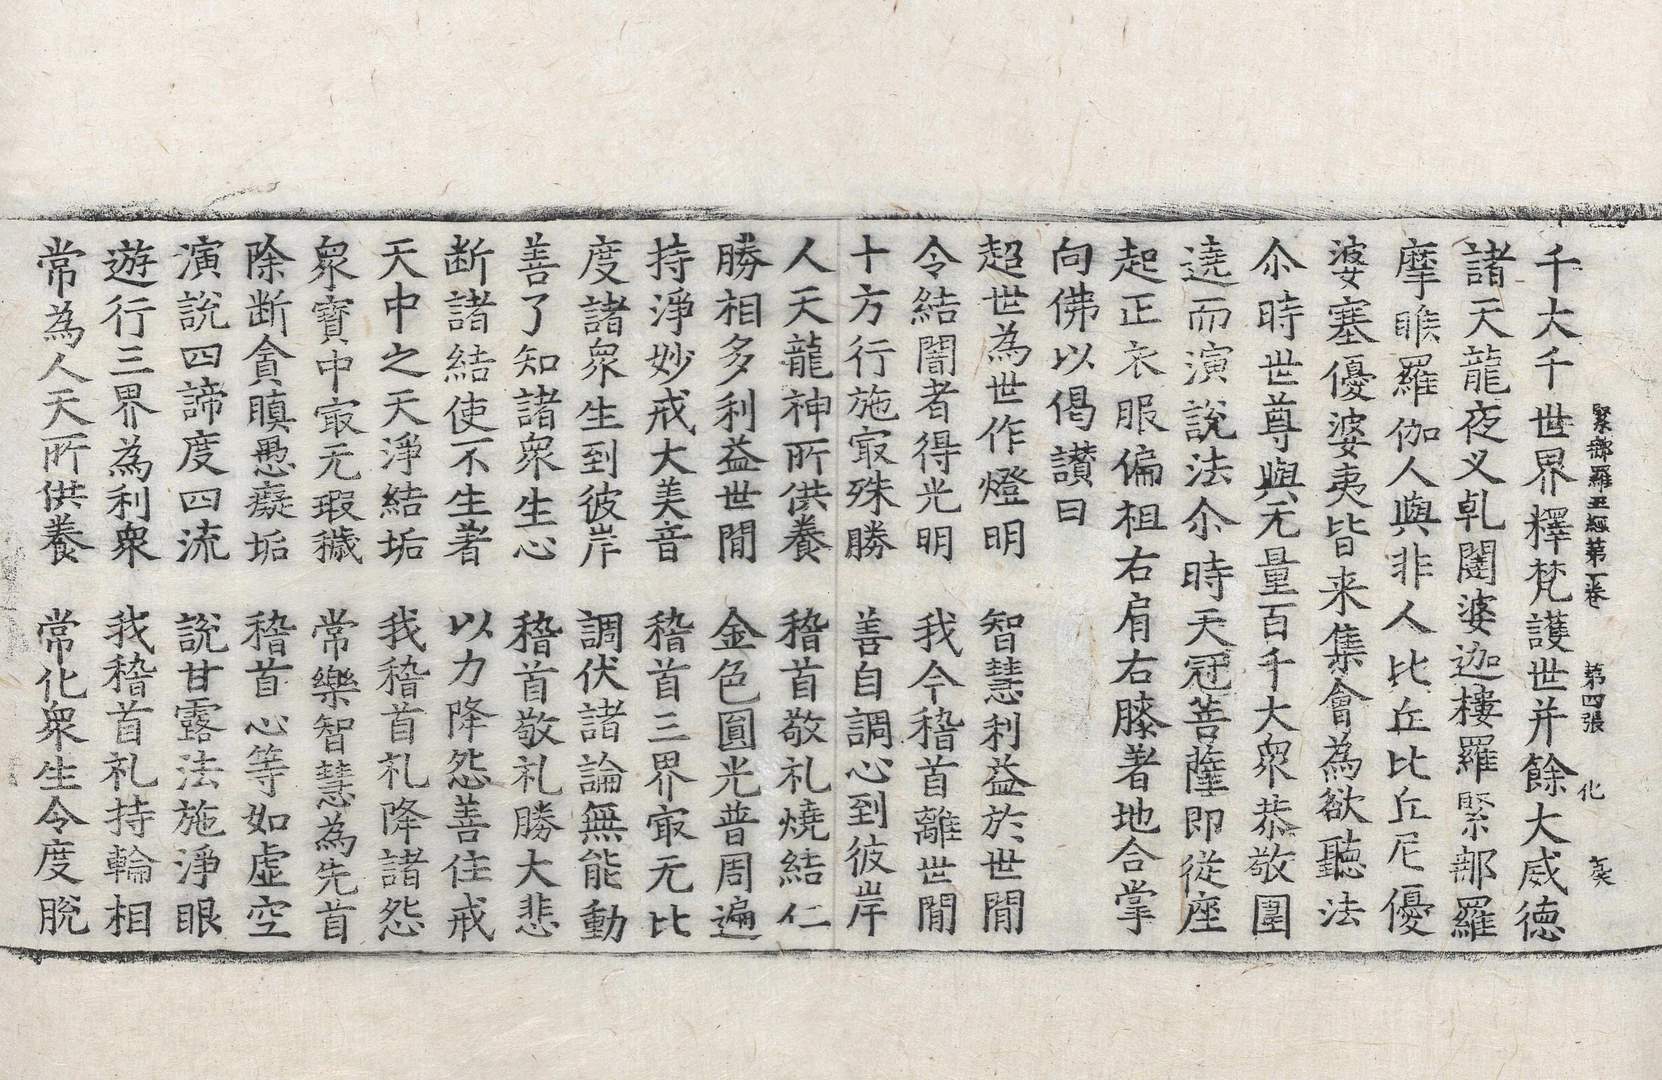 緊那羅王經第一卷　第四張　化
千大千世界釋梵護世并餘大威德
諸天龍夜叉乹闥婆迦樓羅緊那羅
摩睺羅伽人與非人比丘比丘尼優
婆塞優婆夷皆来集會為欲聽法
尒時世尊與无量百千大衆恭敬圍
遶而演說法尒時天冠菩薩即從座
起正衣服偏袒右肩右膝著地合掌
向佛以偈讃曰
超世為世作燈明　智慧利益於世閒
令結闇者得光明　我今稽首離世閒
十方行施冣殊勝　善自調心到彼岸
人天龍神所供養　稽首敬礼燒結仁
勝相多利益世閒　金色圓光普周遍
持淨妙戒大美音　稽首三界冣无比
度諸衆生到彼岸　調伏諸論無能動
善了知諸衆生心　稽首敬礼勝大悲
断諸結使不生著　以力降怨善住戒
天中之天淨結垢　我稽首礼降諸怨
衆寶中冣无瑕穢　常樂智慧為先首
除断貪瞋愚癡垢　稽首心等如虛空
演說四諦度四流　說甘露法施淨眼
遊行三界為利衆　我稽首礼持輪相
常為人天所供養　常化衆生令度脫